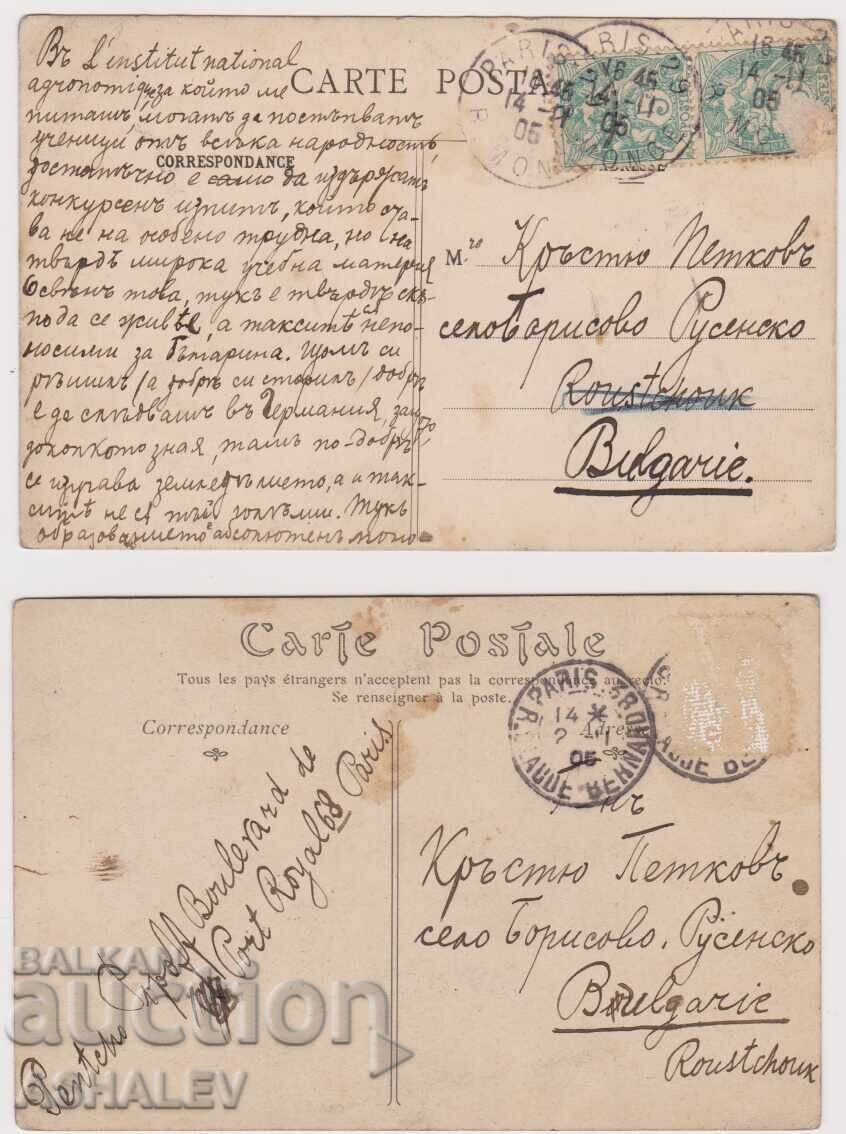 CARTE POSTALE
CORRESPONDANCE
ADRESSE
Въ L'institut national
agronomique за който ме
питашъ, могатъ да постѫпватъ
ученици отъ всѣка народность,
достатъчно е само да издържатъ
конкурсенъ изпитъ, който оста-
ва не на особено трудна, но на
твърдѣ широка учебна материя
Освѣнъ това, тукъ е твърдѣ скѫ-
по да се живѣе, а таксите сѫ непо-
носими за българина. Щомъ си
рѣшилъ /а добрѣ си сторилъ/ добрѣ
е да слѣдвашъ въ Германия, защото,
доколкото зная, тамъ по-добрѣ
се изучава земледѣлието, а и так-
ситѣ не сѫ тъй голѣми. Тукъ
образованието е абсолютенъ моно-
PARIS
16 45
14 -11
05
R. MONGE
PARIS 29
16 45
14 -11
05
R. MONGE
16 45
14 -11
05
М-го Кръстю Петковъ
село Борисово Русенско
Roustchouk
Bulgarie.
Carte Postale
Tous les pays étrangers n'acceptent pas la correspondance au recto.
Se renseigner à la poste.
Correspondance
Adresse
PARIS
14
2 -11
05
CLAUDE BERNARD
Pentcho Popoff Boulevard de
Port Royal 68 Paris
Г-нъ
Кръстю Петковъ
село Борисово, Русенско
Boulgarie
Roustchouk
BALKAN
auction
ASHALEV